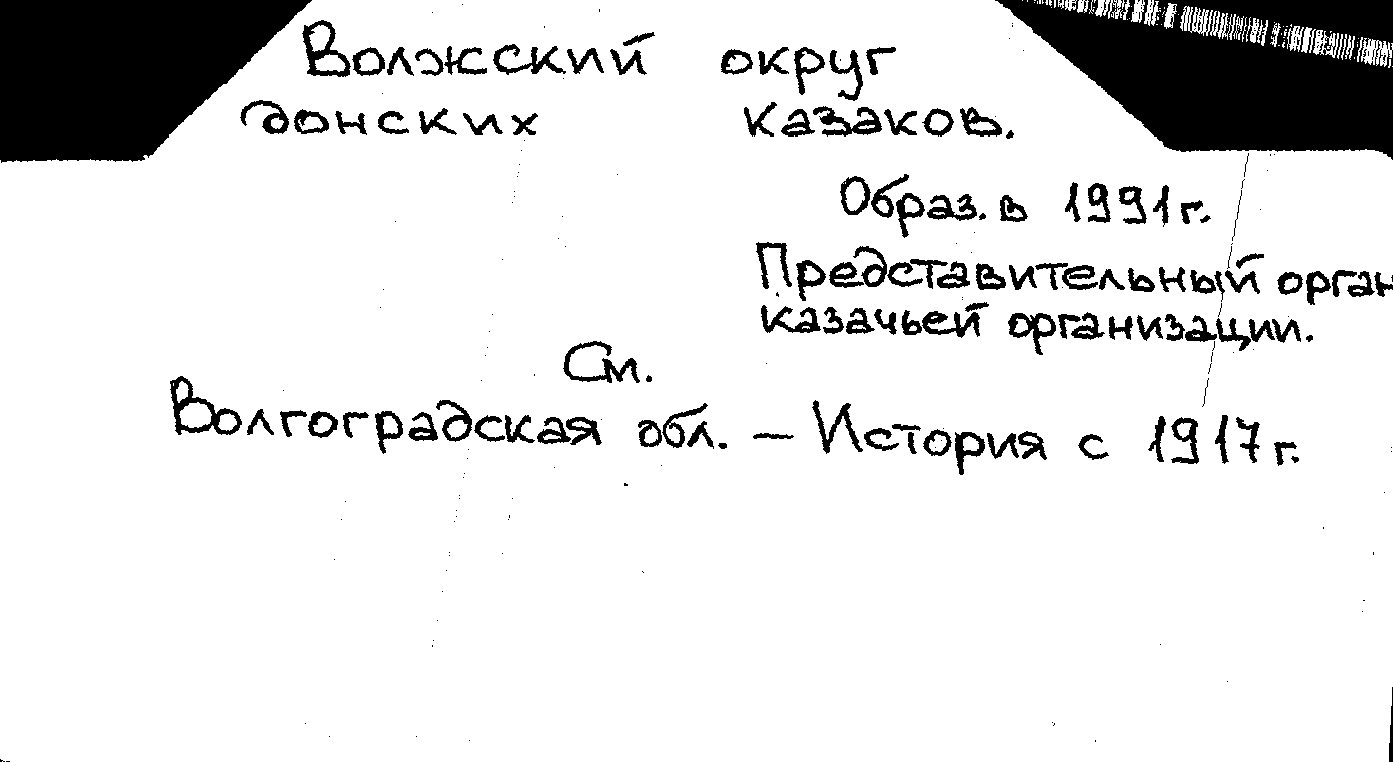 Волжский округ
донских казаков.
Образ. в 1991г.
Представительный орган
казачьей организации.
См.
Волгоградская обл. — История с 1917г.